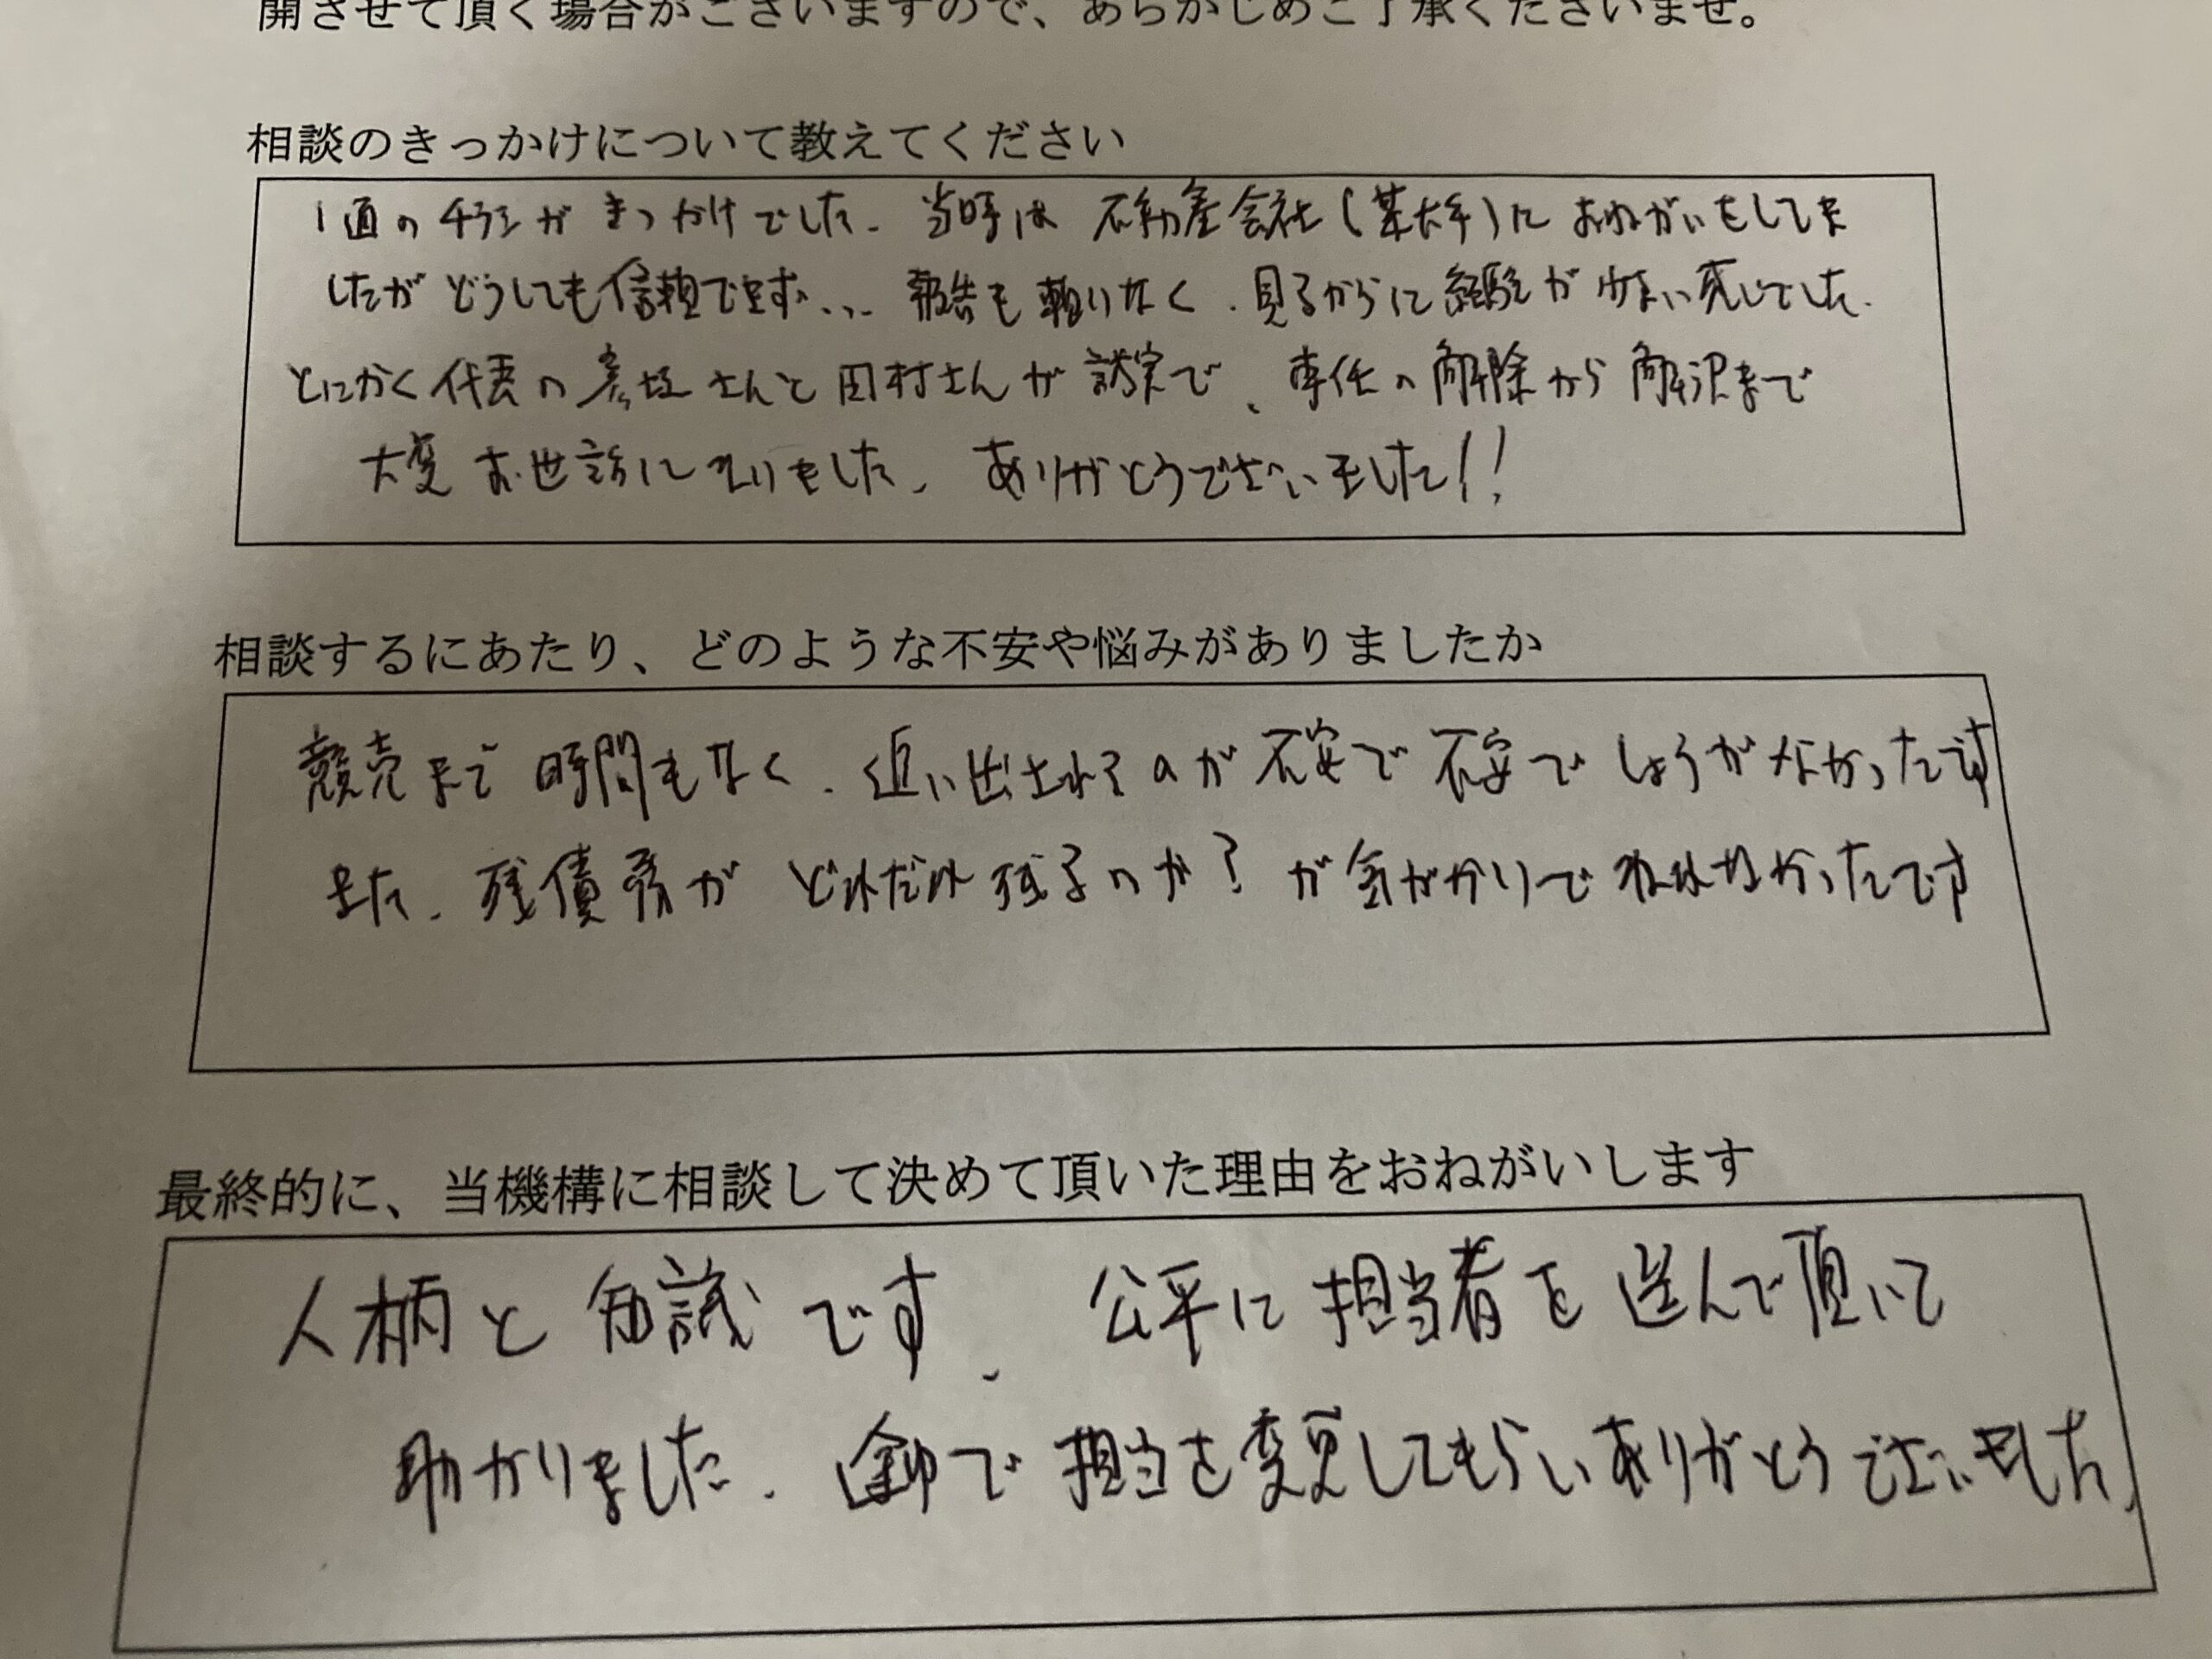 開させて頂く場合がございますので、あらかじめご了承くださいませ。
相談のきっかけについて教えてください
1通のチラシがきっかけでした。当時は不動産会社(某大手)におねがいをしてま
したがどうしても信頼できず、、、報告も頼りなく、見るからに経験が少ない感じでした。
とにかく代表のさんと田村さんが誠実で、専任の解除から解決まで
大変お世話になりました。ありがとうございました!!
相談するにあたり、どのような不安や悩みがありましたか
競売まで時間もなく、追い出されるのが不安で不安でしょうがなかったです
また、残債務がどれだけ残るのか?が気がかりでねれなかったです
最終的に、当機構に相談して決めて頂いた理由をおねがいします
人柄と知識です、公平に担当者を選んで頂いて
助かりました。途中で担当を変更してもらいありがとうございました。